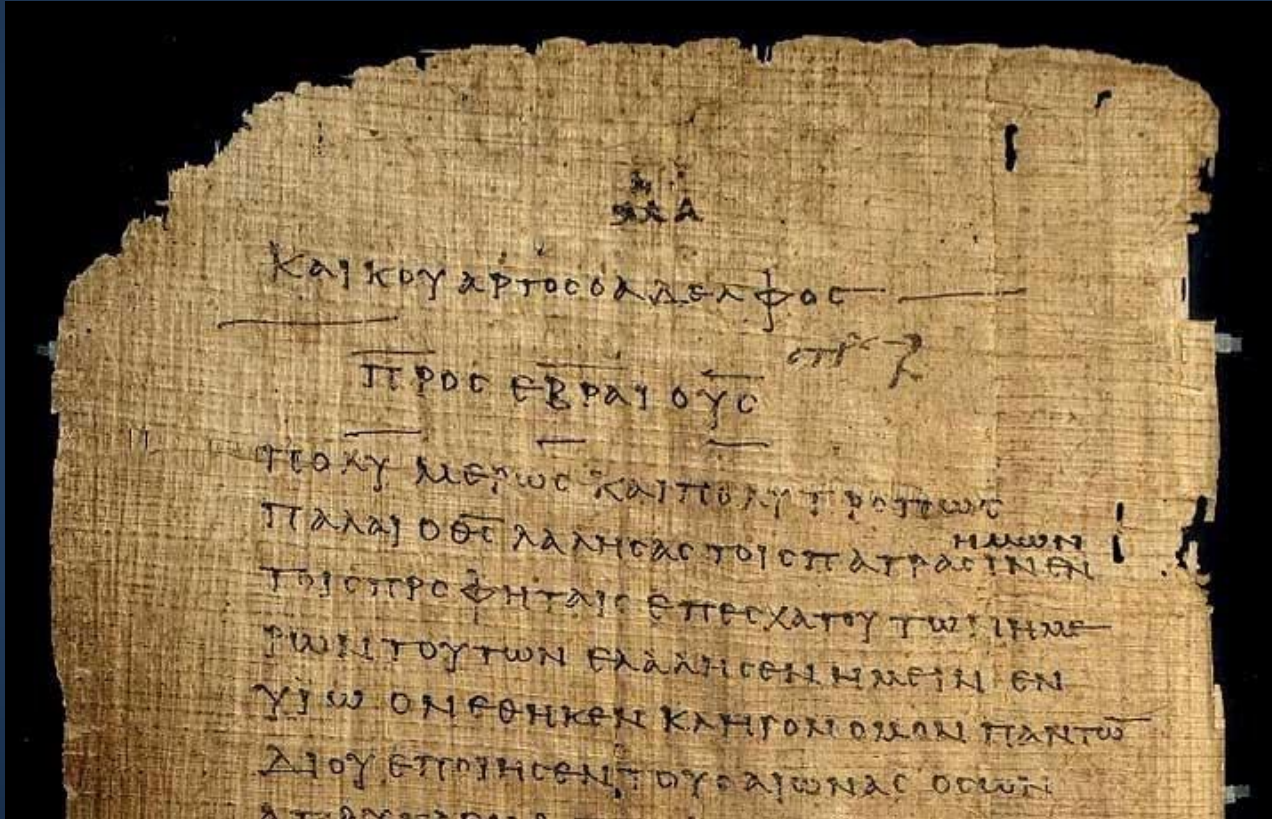 ΚΑΙ ΚΟΥΑΡΤΟС Ο ΑΔΕΛΦΟС
ΠΡΟС ΕΒΡΑΙΟΥС
ΠΟΛΥΜΕΡΩС ΚΑΙ ΠΟΛΥΤΡΟΠΩС
ΠΑΛΑΙ Ο Θ̅С̅ ΛΑΛΗСΑС ΤΟΙС ΠΑΤΡΑСΙΝ ΗΜΩΝ ΕΝ
ΤΟΙС ΠΡΟΦΗΤΑΙС ΕΠ ΕСΧΑΤΟΥ ΤΩΝ ΗΜΕ
ΡΩΝ ΤΟΥΤΩΝ ΕΛΑΛΗСΕΝ ΗΜΕΙΝ ΕΝ
ΥΙΩ ΟΝ ΕΘΗΚΕΝ ΚΛΗΡΟΝΟΜΟΝ ΠΑΝΤΩ̅
ΔΙ ΟΥ ΕΠΟΙΗСΕΝ ΤΟΥС ΑΙΩΝΑС ΟС ΩΝ